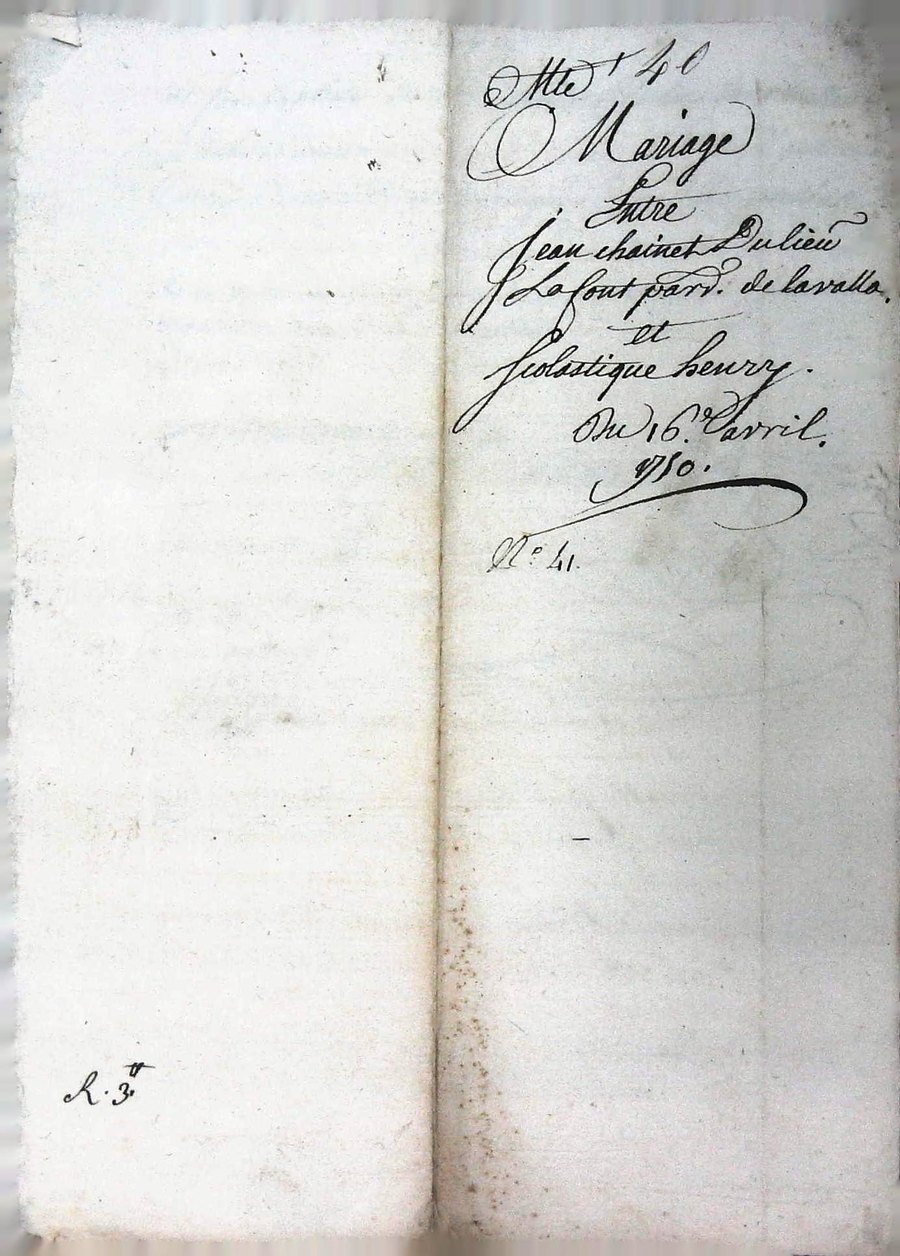 40
Mariage
Entre
Jean chainet Du lieu
La font parr. de lavalla.
et
scolastique henry.
Du 16.e avril.
1750.
N.o 41.
R. 3.tt